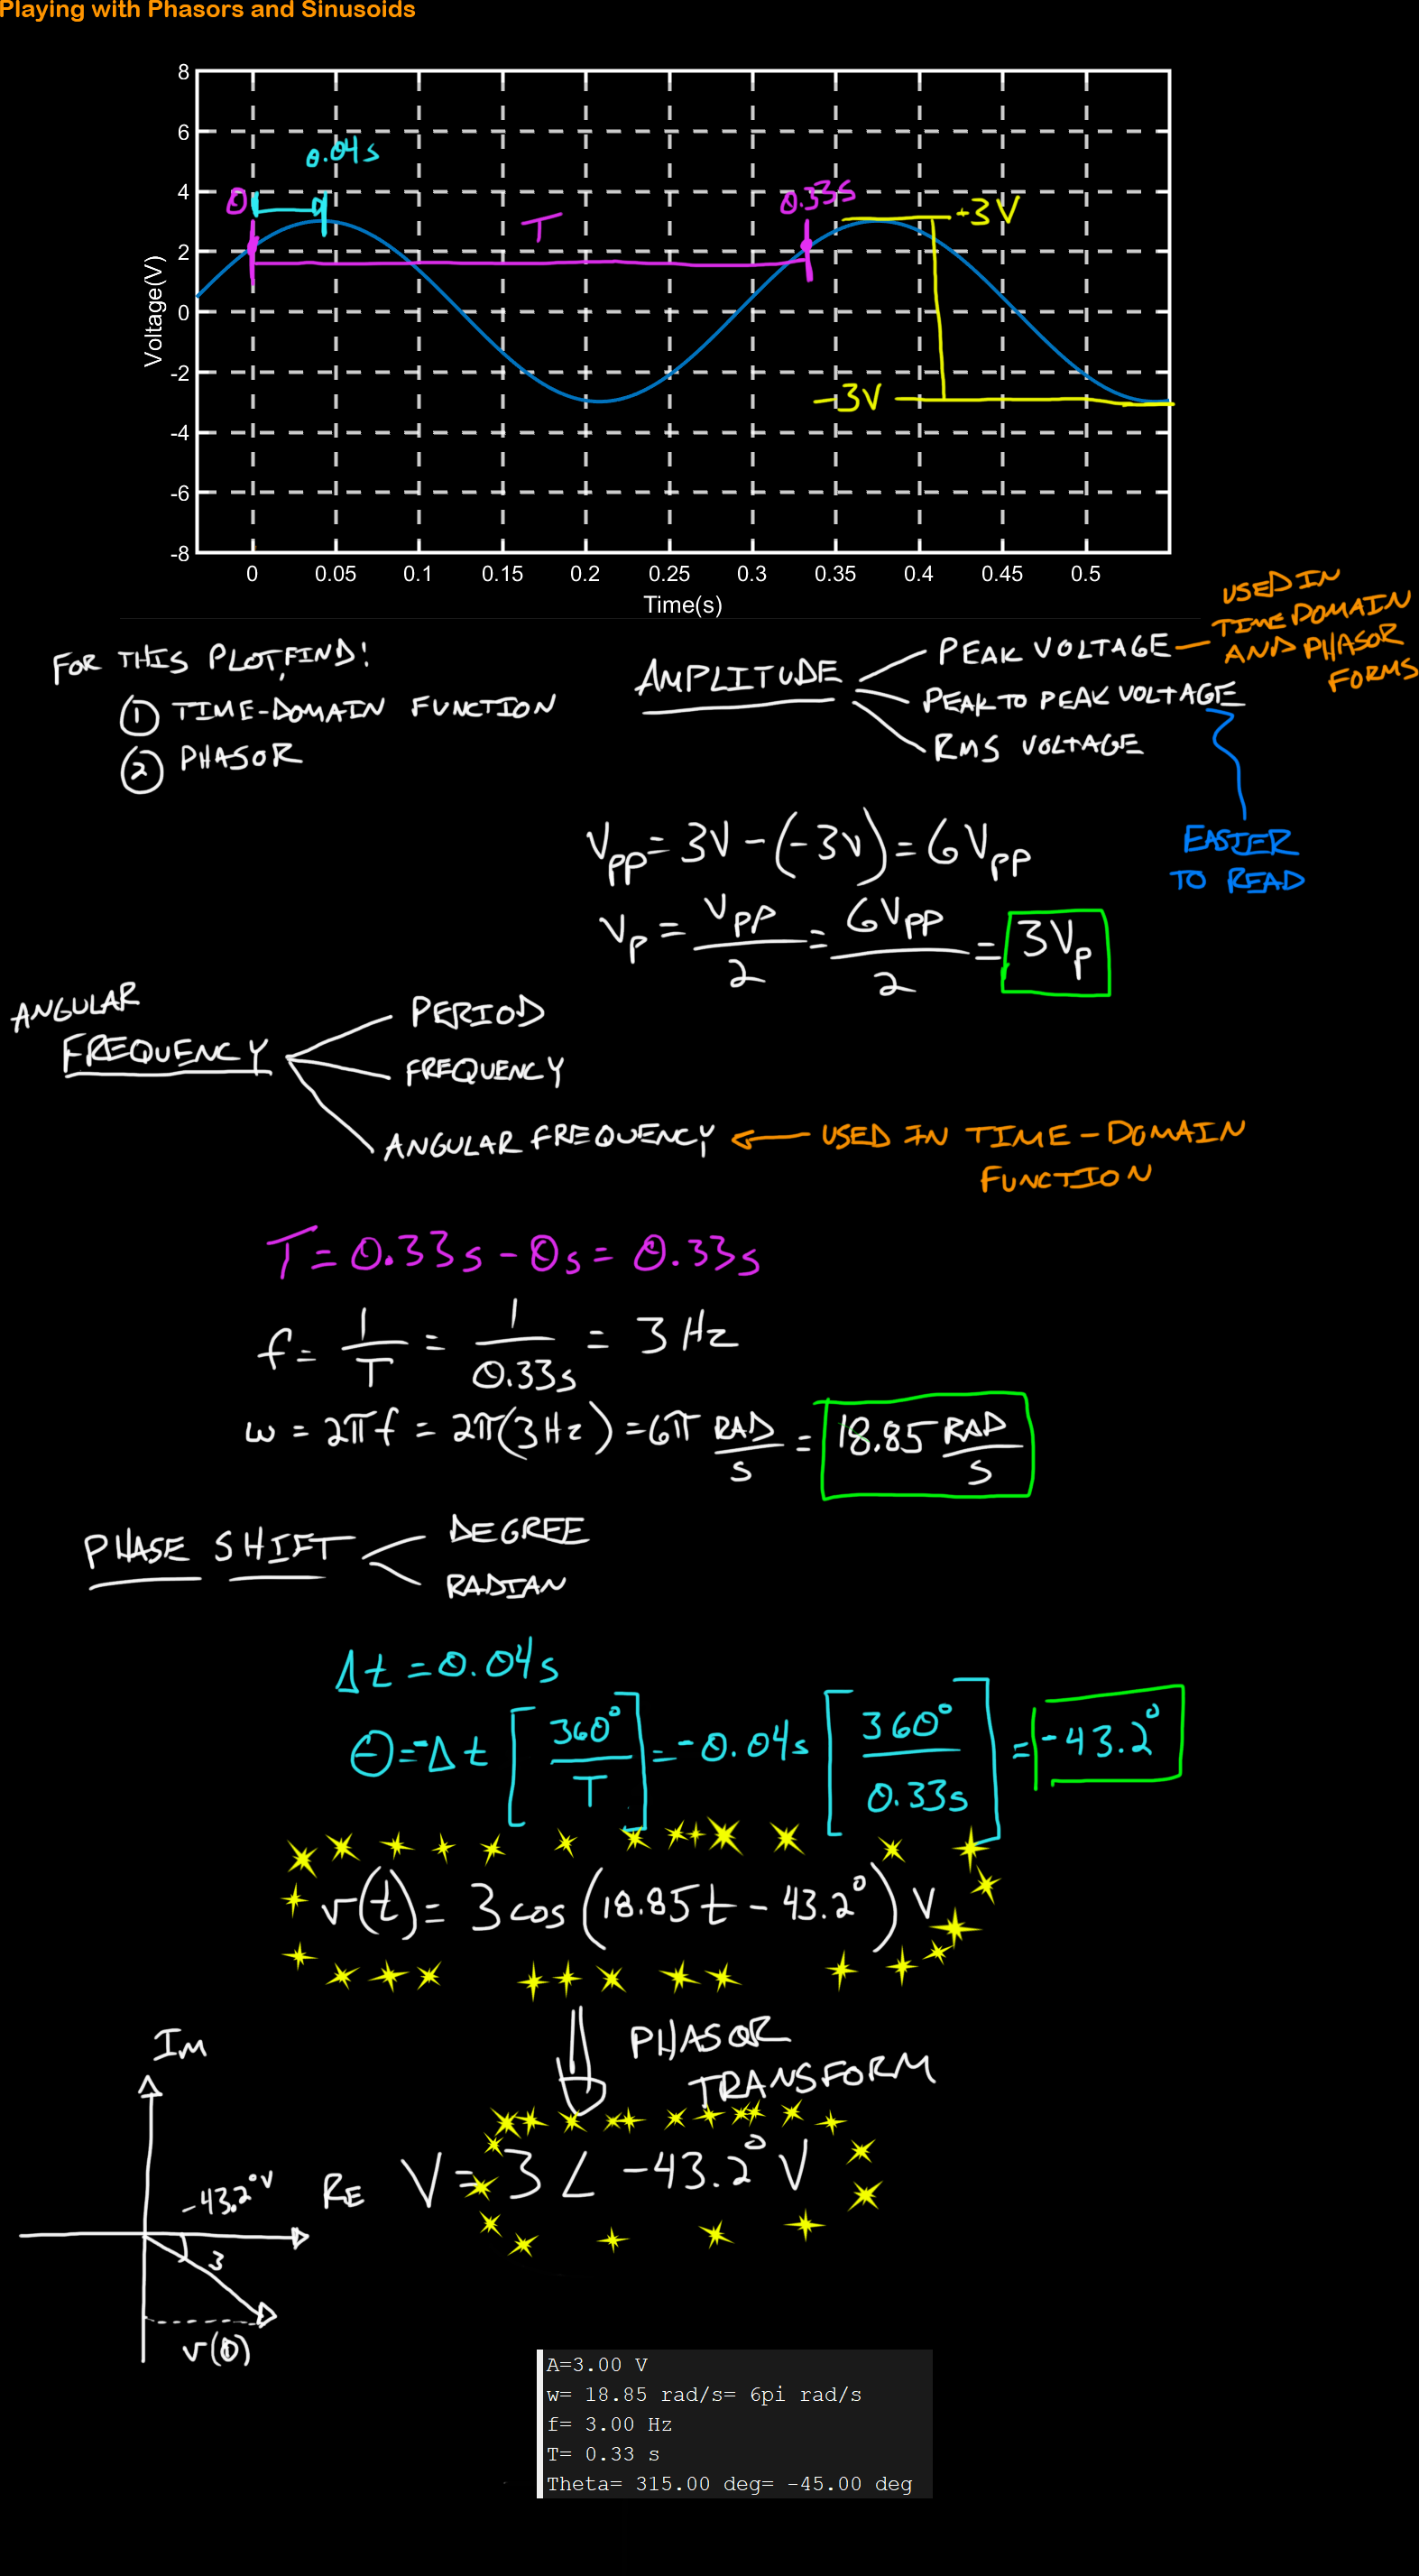 Playing with Phasors and Sinusoids
8
6
4
2
0
-2
-4
-6
-8
Voltage(V)
0.04s
0
T
0.33s
+3V
-3V
0 0.05 0.1 0.15 0.2 0.25 0.3 0.35 0.4 0.45 0.5
Time(s)
FOR THIS PLOT, FIND:
① TIME-DOMAIN FUNCTION
② PHASOR
AMPLITUDE
PEAK VOLTAGE
PEAK TO PEAK VOLTAGE
RMS VOLTAGE
USED IN
TIME DOMAIN
AND PHASOR
FORMS
EASIER
TO READ
Vpp = 3V - (-3V) = 6Vpp
Vp = Vpp/2 = 6Vpp/2 = 3Vp
ANGULAR
FREQUENCY
PERIOD
FREQUENCY
ANGULAR FREQUENCY ← USED IN TIME-DOMAIN
FUNCTION
T = 0.33s - 0s = 0.33s
f = 1/T = 1/0.33s = 3 Hz
ω = 2πf = 2π(3Hz) = 6π RAD/S = 18.85 RAD/S
PHASE SHIFT
DEGREE
RADIAN
Δt = 0.04s
Θ = -Δt [360°/T] = -0.04s [360°/0.33s] = -43.2°
v(t) = 3 cos (18.85t - 43.2°) V
PHASOR
TRANSFORM
V = 3 ∠ -43.2° V
Im
Re
-43.2° V
3
v(0)
A=3.00 V
w= 18.85 rad/s= 6pi rad/s
f= 3.00 Hz
T= 0.33 s
Theta= 315.00 deg= -45.00 deg